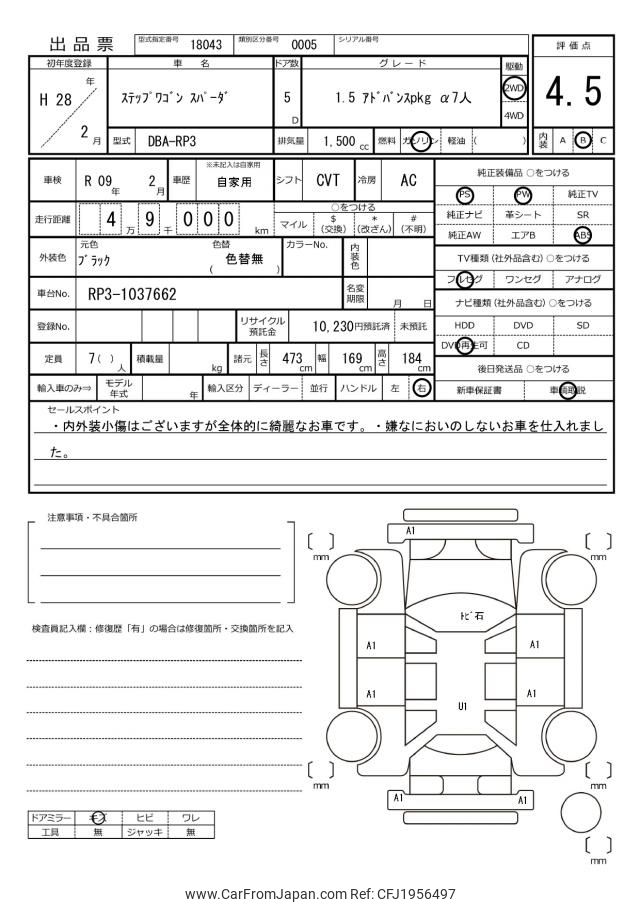 出品票 型式指定番号 18043 類別区分番号 0005 シリアル番号
評価点
4.5
内装 A B C
初年度登録 車名 ドア数 グレード 駆動
H 28 年 2 月 ステップワゴン スパーダ 5 D 1.5 アドバンスpkg α7人 2WD 4WD
型式 DBA-RP3 排気量 1,500 cc 燃料 ガソリン 軽油 ( )
車検 R 09 年 2 月 車歴 ※未記入は自家用 自家用 シフト CVT 冷房 AC
走行距離 4 9 0 0 0 万 千 km
○をつける
マイル $ (交換) * (改ざん) # (不明)
外装色 元色 ブラック 色替 ( 色替無 ) カラーNo. 内装色
車台No. RP3-1037662 名変期限 月 日
登録No. リサイクル預託金 10,230円預託済 未預託
定員 7( ) 人 積載量 kg 諸元 長さ 473 cm 幅 169 cm 高さ 184 cm
輸入車のみ⇒ モデル年式 年 輸入区分 ディーラー 並行 ハンドル 左 右
純正装備品 ○をつける
PS PW 純正TV
純正ナビ 革シート SR
純正AW エアB ABS
TV種類 (社外品含む) ○をつける
フルセグ ワンセグ アナログ
ナビ種類 (社外品含む) ○をつける
HDD DVD SD
DVD再生可 CD
後日発送品 ○をつける
新車保証書 車輌取説
セールスポイント
・内外装小傷はございますが全体的に綺麗なお車です。・嫌なにおいのしないお車を仕入れまし
た。
注意事項・不具合箇所
検査員記入欄：修復歴「有」の場合は修復箇所・交換箇所を記入
ドアミラー キズ ヒビ ワレ
工具 無 ジャッキ 無
A1
mm
mm
トビ石
A1
A1
A1
A1
U1
mm
mm
A1
A1
mm
www.CarFromJapan.com Ref: CFJ1956497